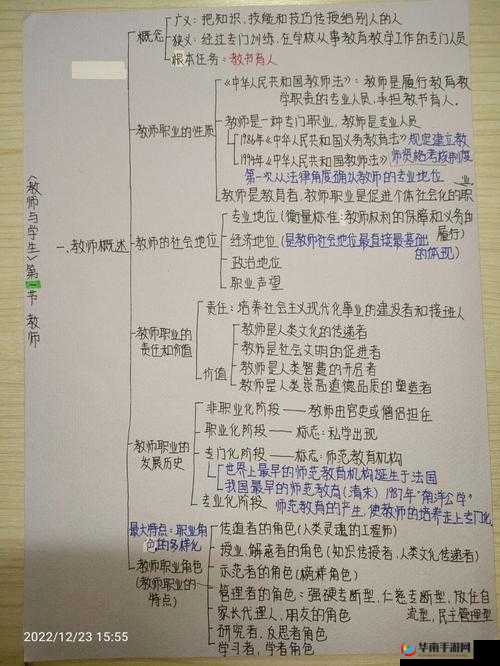 《教师与学生》第一节 教师
一、教师概述
概念
广义：把知识、技能和技巧传授给别人的人
狭义：经过专门训练，在学校从事教育教学工作的专门人员
根本任务：教书育人
教师职业的性质
《中华人民共和国教师法》：教师是履行教育教
学职责的专业人员，承担教书育人。
教师是一种专门职业，教师是专业人员
1986年《中华人民共和国义务教育法》规定建立教
1994年《中华人民共和国教师法》师资格考核制度
第一次从法律角度确认教师的专业地位
教师是教育者，教师职业是促进个体社会化的职
业
教师的社会地位
专业地位（衡量标准：教师权利的保障和义务的
履行）
经济地位（是教师社会地位最直接最基础
的体现）
政治地位
职业声望
教师职业的
责任和价值
责任：培养社会主义现代化事业的建设者和接班人
价值
教师是人类文化的传递者
教师是社会文明的促进者
教师是人类智慧的开启者
教师是人类崇高道德品质的塑造者
教师职业的
发展历史
非职业化阶段——教师由官吏或僧侣担任
职业化阶段——标志：私学出现
专门化阶段——标志：师范教育机构
世界上最早的师范教育机构诞生于法国
我国最早的师范教育（清末）1987年"南洋公学"
专业化阶段 师范教育的产生，使教师的培养走上专门化
最大特点：职业角
色的多样化
教师职业角色
（教师职业的
特点）
传道者的角色（人类灵魂的工程师）
授业、解惑者的角色（知识传授者，人类文化传递者）
示范者的角色（榜样角色）
管理者的角色：强硬专断型，仁慈专断型，放任自
流型，民主管理型
家长代理人、朋友的角色
研究者，反思者角色
学习者，学者角色
2022/12/23 15:55
华南手游网